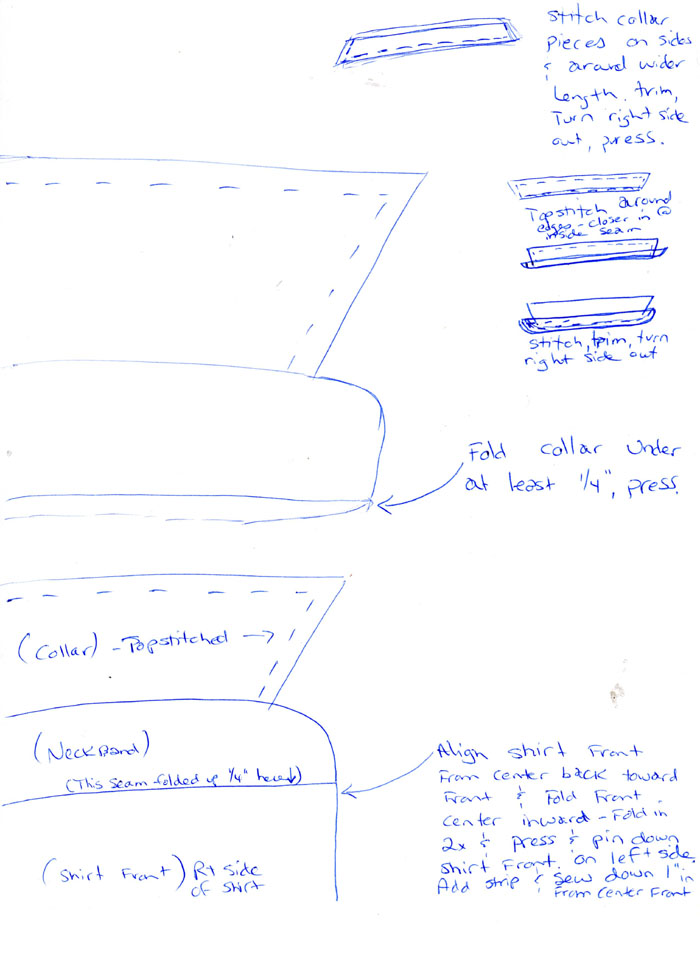 Stitch collar
pieces on sides
& around wider
length. trim,
Turn right side
out, press.
Topstitch around
edges - closer in @
inside seam
stitch, trim, turn
right side out
Fold collar under
at least 1/4", press.
(Collar) - Topstitched →
(Neckband)
(This seam folded up 1/4" here↓)
(Shirt Front) Rt side
of shirt
Align shirt front
From center back toward
Front & Fold Front
center inward - Fold in
2x & press & pin down
shirt Front. on left side.
Add strip & sew down 1" in
From center Front